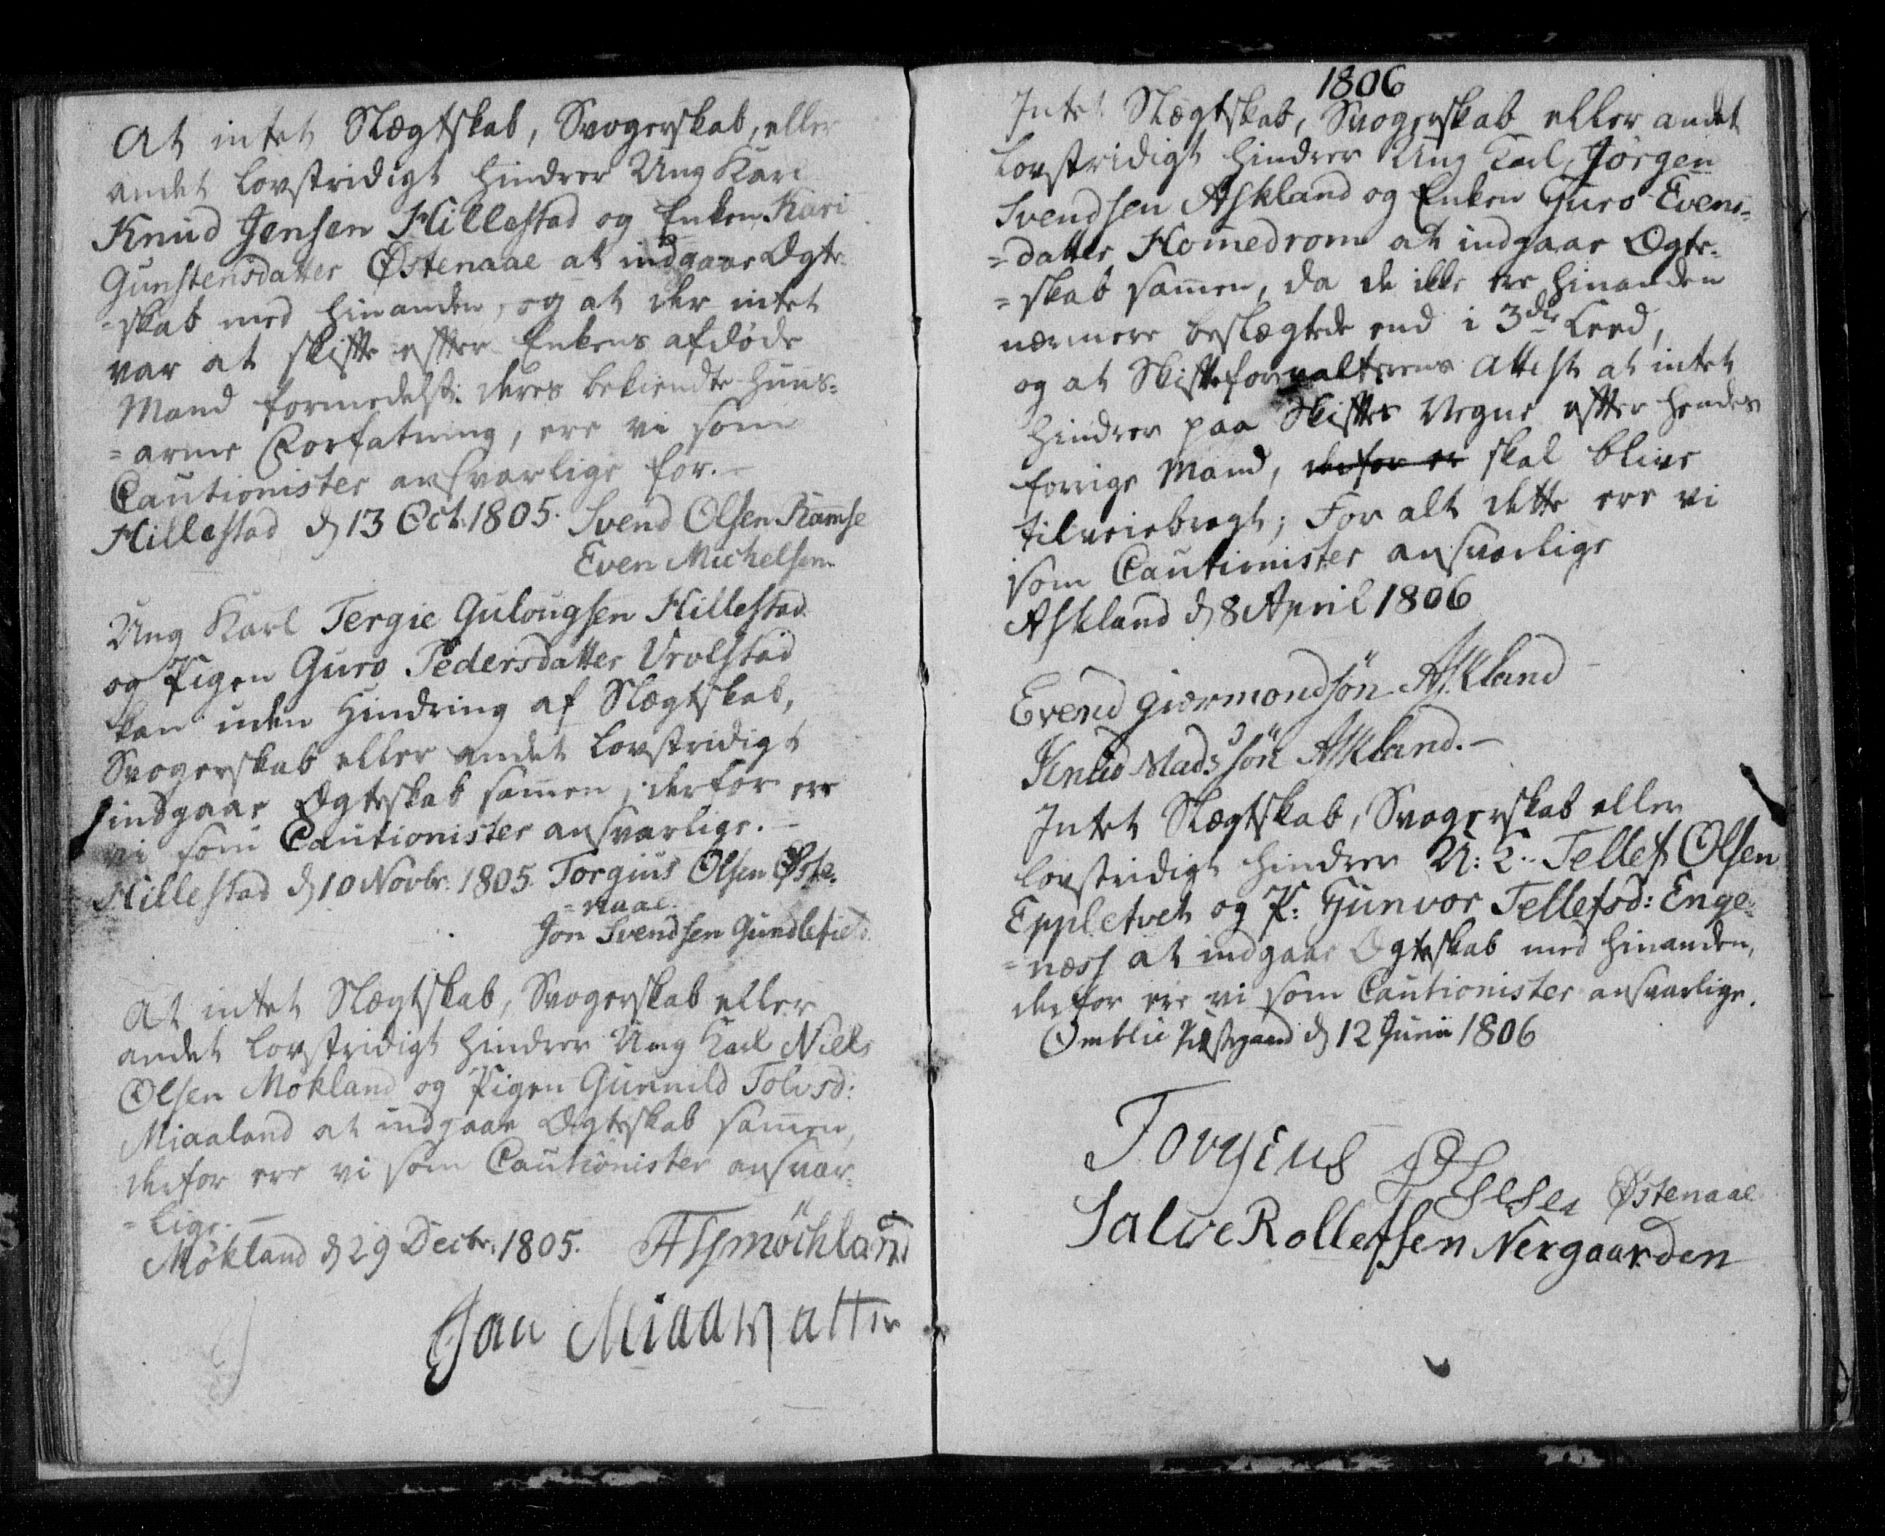 At intet Slægtskab, Svogerskab, eller
andet lovstridigt hindrer Ung Karl
Knud Jensen Hillestad og Enken Kari
Gunstensdatter Østenaae at indgaae Ægte-
=skab med hinanden, og at der intet
var at skifte efter Enkens afdøde
Mand formedelst deres bekiendte huus=
=arme Forfatning, ere vi som
Cautionister ansvarlige for.–
Hillestad d 13 Oct: 1805. Svend Olsen Ramse
Even Michelsen
Ung Karl Tergie Gulougsen Hillestad
og Pigen Guro Pedersdatter Vrolstad
kan uden Hindring af Slægtskab,
Svogerskab eller andet lovstridigt
indgaae Ægteskab samen, derfor ere
vi som Cautionister ansvarlige.–
Hillestad d 10 Novbr. 1805. Torgius Olsen Øste-
=naae.
Jon Svendsen Gundlefield.
At intet Slægtskab, Svogerskab eller
andet lovstridigt hindrer Ung Karl Niels
Olsen Mokland og Pigen Gunnild Tolvsd:
Miaaland at indgaae Ægteskab samen,
derfor ere vi som Cautionister ansvar-
=lige.–
Mökland d 29 Decbr. 1805.
Jan
1806
Intet Slægtskab, Svogerskab eller andet
lovstridigt hindrer Ung Karl Jørgen
Svendsen Askland og Enken Guro Evens=
=datter Homedrom at indgaae Ægte-
=skab samen, da de ikke ere hinanden
nærmere beslægtede end i 3die Leed,
og at Skifteforvalterens Attest at intet
hindrer paa Skiftes Vegne efter hendes
forrige Mand, derfor er skal blive
tilveiebragt; For alt dette ere vi
som Cautionister ansvarlige
Askland d 8 April 1806
Evend giermondsøn Askland
Knud Madssøn Askland.–
Intet Slægtskab, Svogerskab eller
lovstridigt hindrer U: K: Tellef Olsen
Eppletvet og P: Gunvor Tellefsd: Enge-
=næss at indgaae Ægteskab med hinanden,
derfor ere vi som Cautionister ansvarlige.
Omblie Præstegaard d 12 Junii 1806
Torgius Olsen Østenaae
Salve Rollefsen Nergaarden